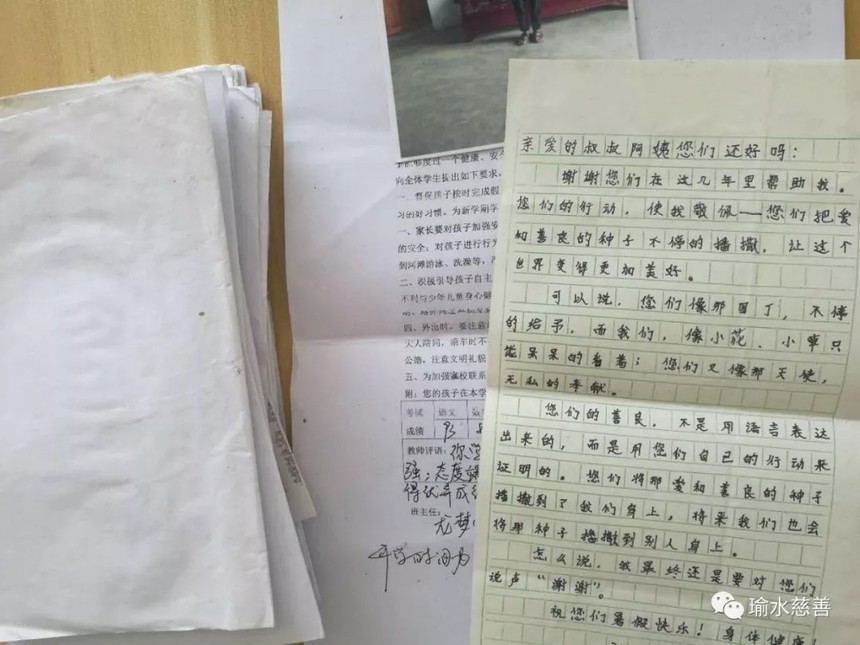 度过一个健康、安
向全体学生提出如下要求,
一、督促孩子按时完成假
习的好习惯。为新学期学
一、家长要对孩子加强安
的安全;对孩子进行行为
到河滩游泳、洗澡等,
二、积极引导孩子自主
不利与少年儿童身心健
四、外出时,要注意
大人陪同,乘车时不
公德,注意文明礼貌
五、为加强家校联系
附:您的孩子在本学
考试 语文
成绩 93
教师评语:你学
强;态度
得优异成
班主任:
龙梦
开学时间为
亲爱的叔叔阿姨您们还好吗:
谢谢您们在这几年里帮助我。
您们的行动,使我敬佩——您们把爱
和善良的种子不停的播撒,让这个
世界变得更加美好。
可以说,您们像那园丁,不停
的给予,而我们,像小花、小草只
能呆呆的看着;您们又像那天使,
无私的奉献。
您们的善良,不是用语言表达
出来的,而是用您们自己的行动来
证明的。您们将那爱和善良的种子
播撒到了我们身上,将来我们也会
将那种子播撒到别人身上。
怎么说,我最终还是要对您们
说声“谢谢”。
祝您们暑假快乐!身体健康
瑜水慈善